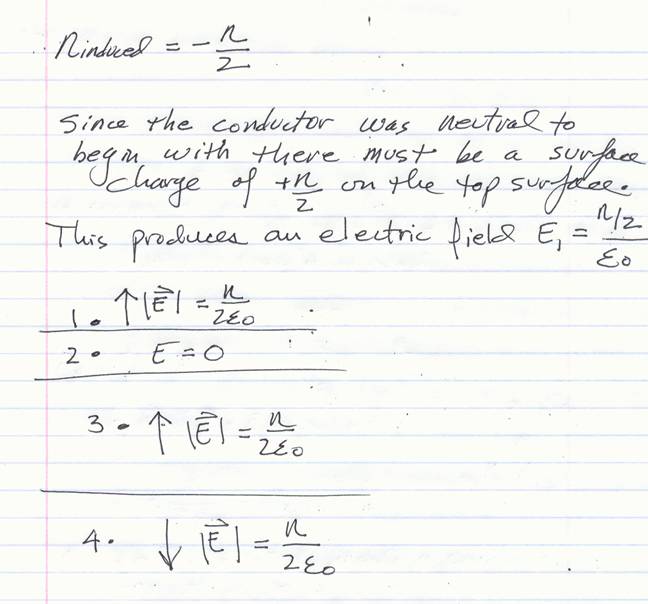 ninduced = - n/2
Since the conductor was neutral to
begin with there must be a surface
charge of +n/2 on the top surface.
This produces an electric field E₁ = n/2/ε₀
1. ↑ |E⃗| = n/2ε₀
2. E = 0
3. ↑ |E⃗| = n/2ε₀
4. ↓ |E⃗| = n/2ε₀